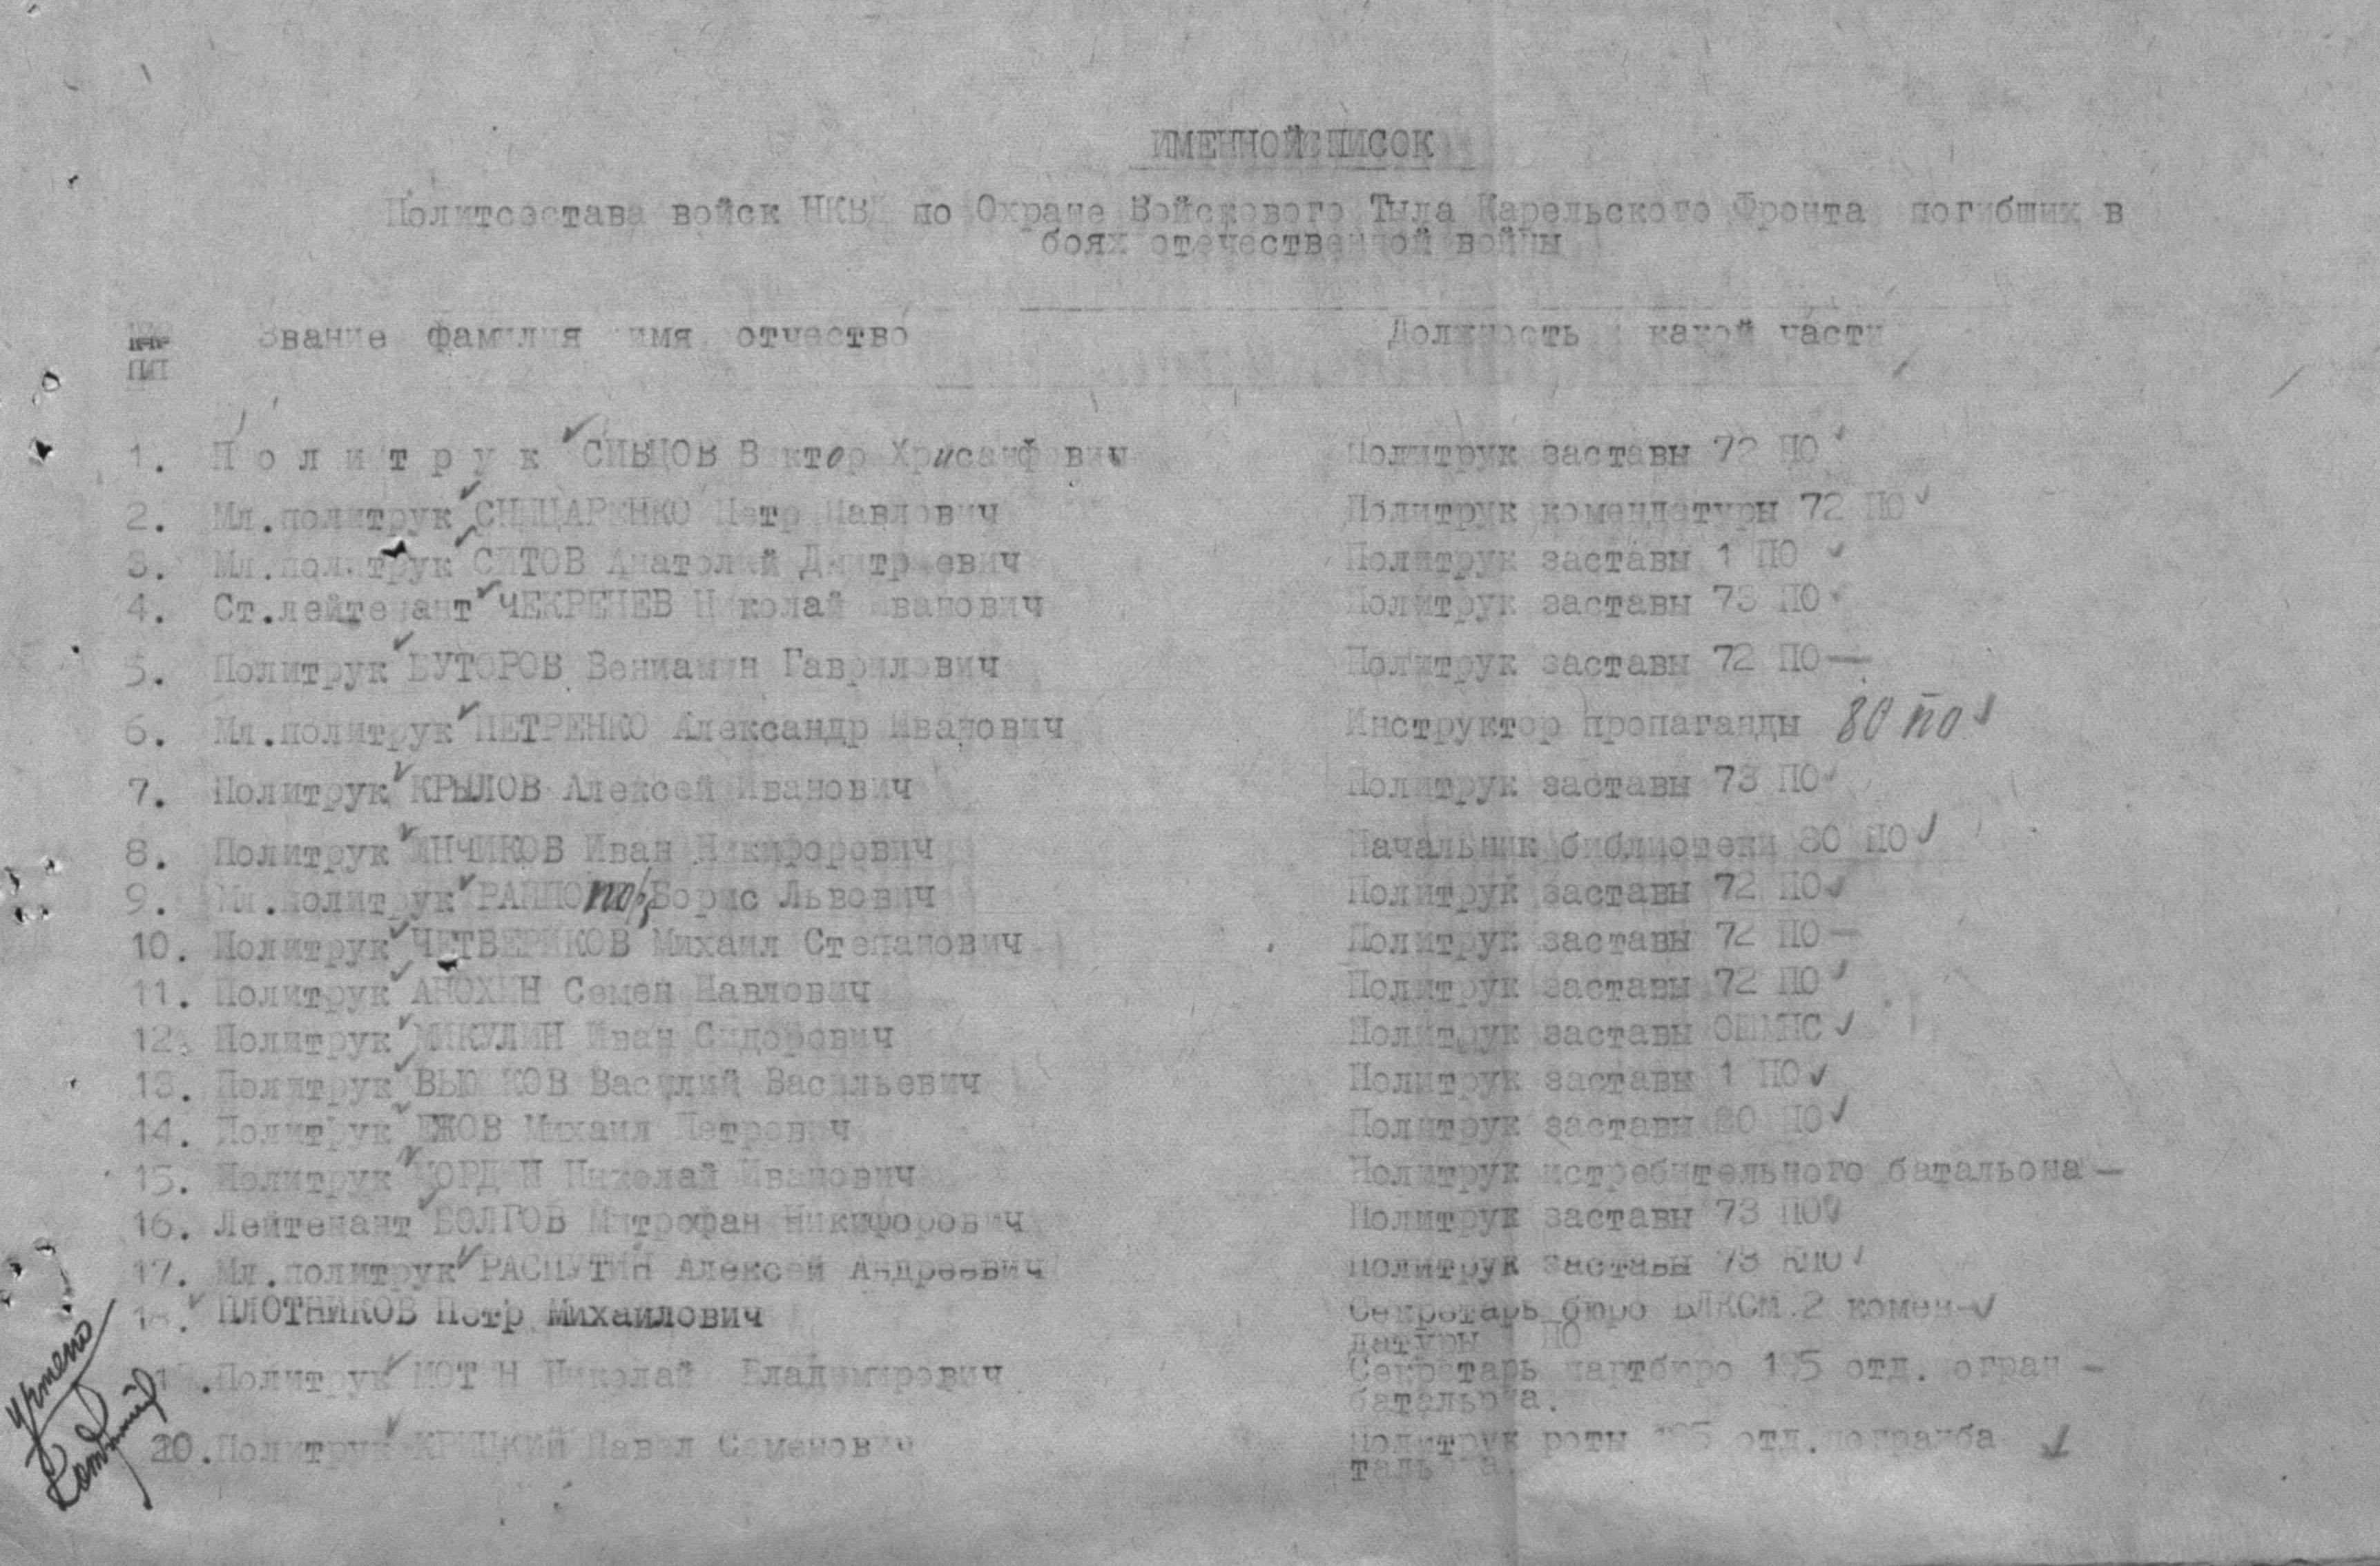 ИМЕННОЙ СПИСОК
Политсостава войск НКВД по Охране Войскового Тыла Карельского Фронта погибших в
боях отечественной войны
№№ Звание фамилия имя отчество Должность и какой части
ПП
1. Политрук СИВЦОВ Виктор Хрисанфович Политрук заставы 72 ПО
2. Мл.политрук Петр Павлович Политрук комендатуры 72 ПО
3. Мл.политрук СИТОВ Анатолий Дмитриевич Политрук заставы 1 ПО
4. Ст.лейтенант ЧЕКРЕНЕВ Николай Иванович Политрук заставы 73 ПО
5. Политрук БУТОРОВ Вениамин Гаврилович Политрук заставы 72 ПО —
6. Мл.политрук ПЕТРЕНКО Александр Иванович Инструктор пропаганды 80 по
7. Политрук КРЫЛОВ Алексей Иванович Политрук заставы 73 ПО
8. Политрук Иван Никифорович Начальник библиотеки 80 ПО
9. Мл.политрук РАППОпорт Борис Львович Политрук заставы 72 ПО
10. Политрук ЧЕТВЕРИКОВ Михаил Степанович Политрук заставы 72 ПО —
11. Политрук АНОХИН Семен Павлович Политрук заставы 72 ПО
12. Политрук МИКУЛИН Иван Сидорович Политрук заставы
13. Политрук Василий Васильевич Политрук заставы 1 ПО
14. Политрук ЕЖОВ Михаил Петрович Политрук заставы 80 ПО
15. Политрук Николай Иванович Политрук истребительного батальона —
16. Лейтенант Митрофан Никифорович Политрук заставы 73 ПО
17. Мл.политрук РАСПУТИН Алексей Андреевич Политрук заставы 73 КПО
18. ПЛОТНИКОВ Петр Михаилович Секретарь бюро ВЛКСМ 2 комен-
датуры ПО
19. Политрук МОТИН Николай Владимирович Секретарь партбюро 185 отд. погран -
батальона.
20. Политрук КРИЦКИЙ Павел Семенович Политрук роты отд.погранба
тальона.
учтено